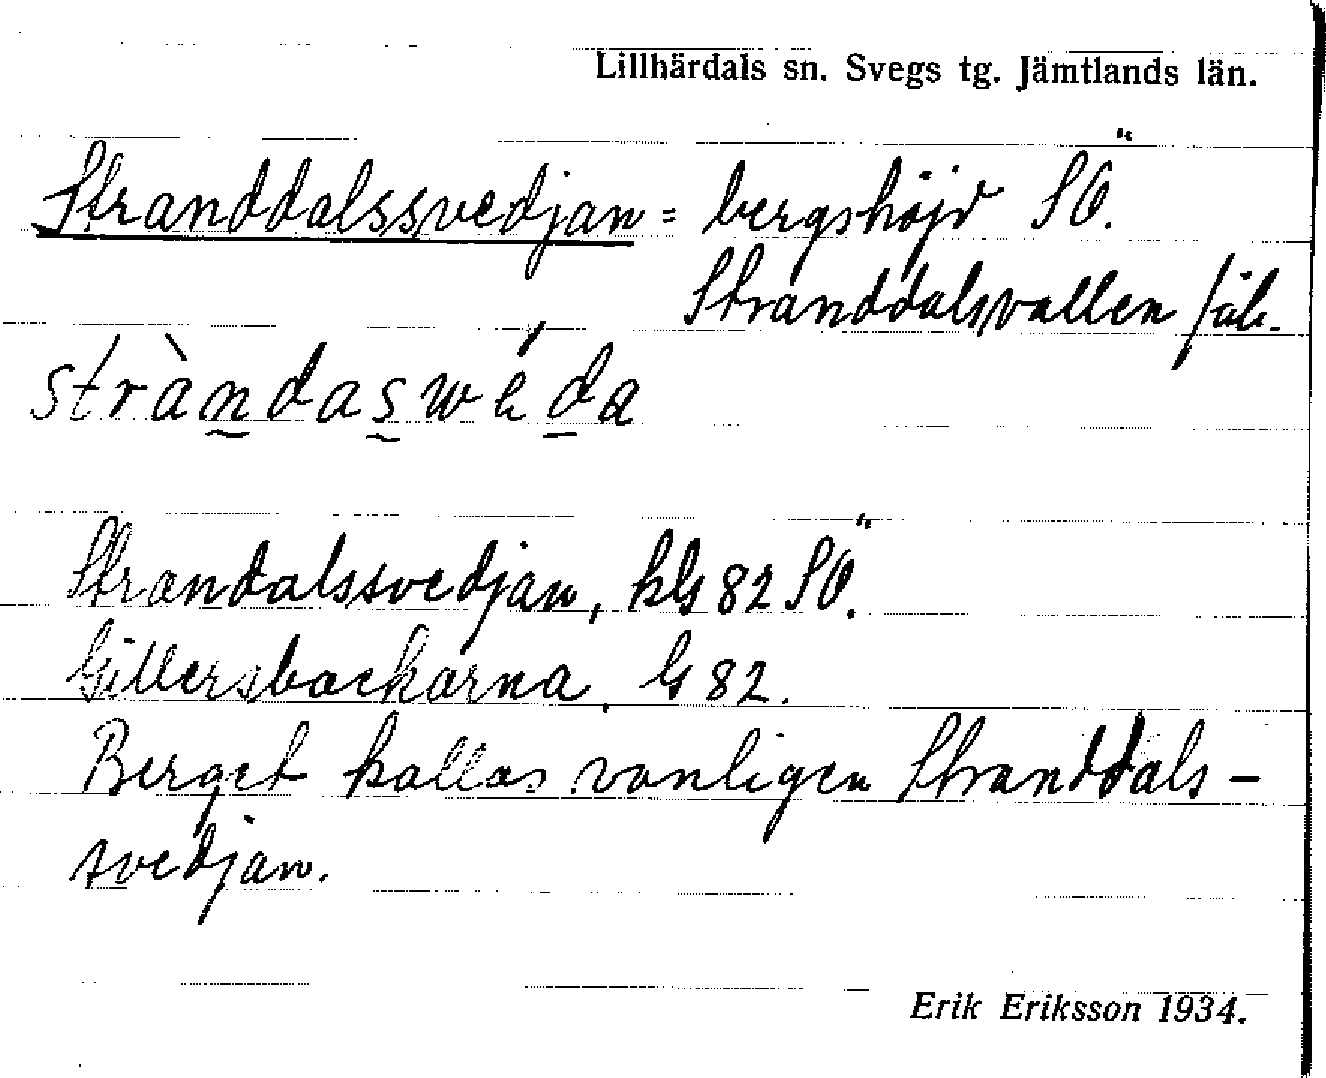 Lillhärdals sn. Svegs tg. Jämtlands län.
Stranddalssvedjan = bergshöjd SÖ.
Stranddalsvallen fäb.
stràndaswéda
Strandalssvedjan, kG 82 SÖ.
Gillersbackarna, G 82.
Berget kallas vanligen Stranddals-
svedjan.
Erik Eriksson 1934.